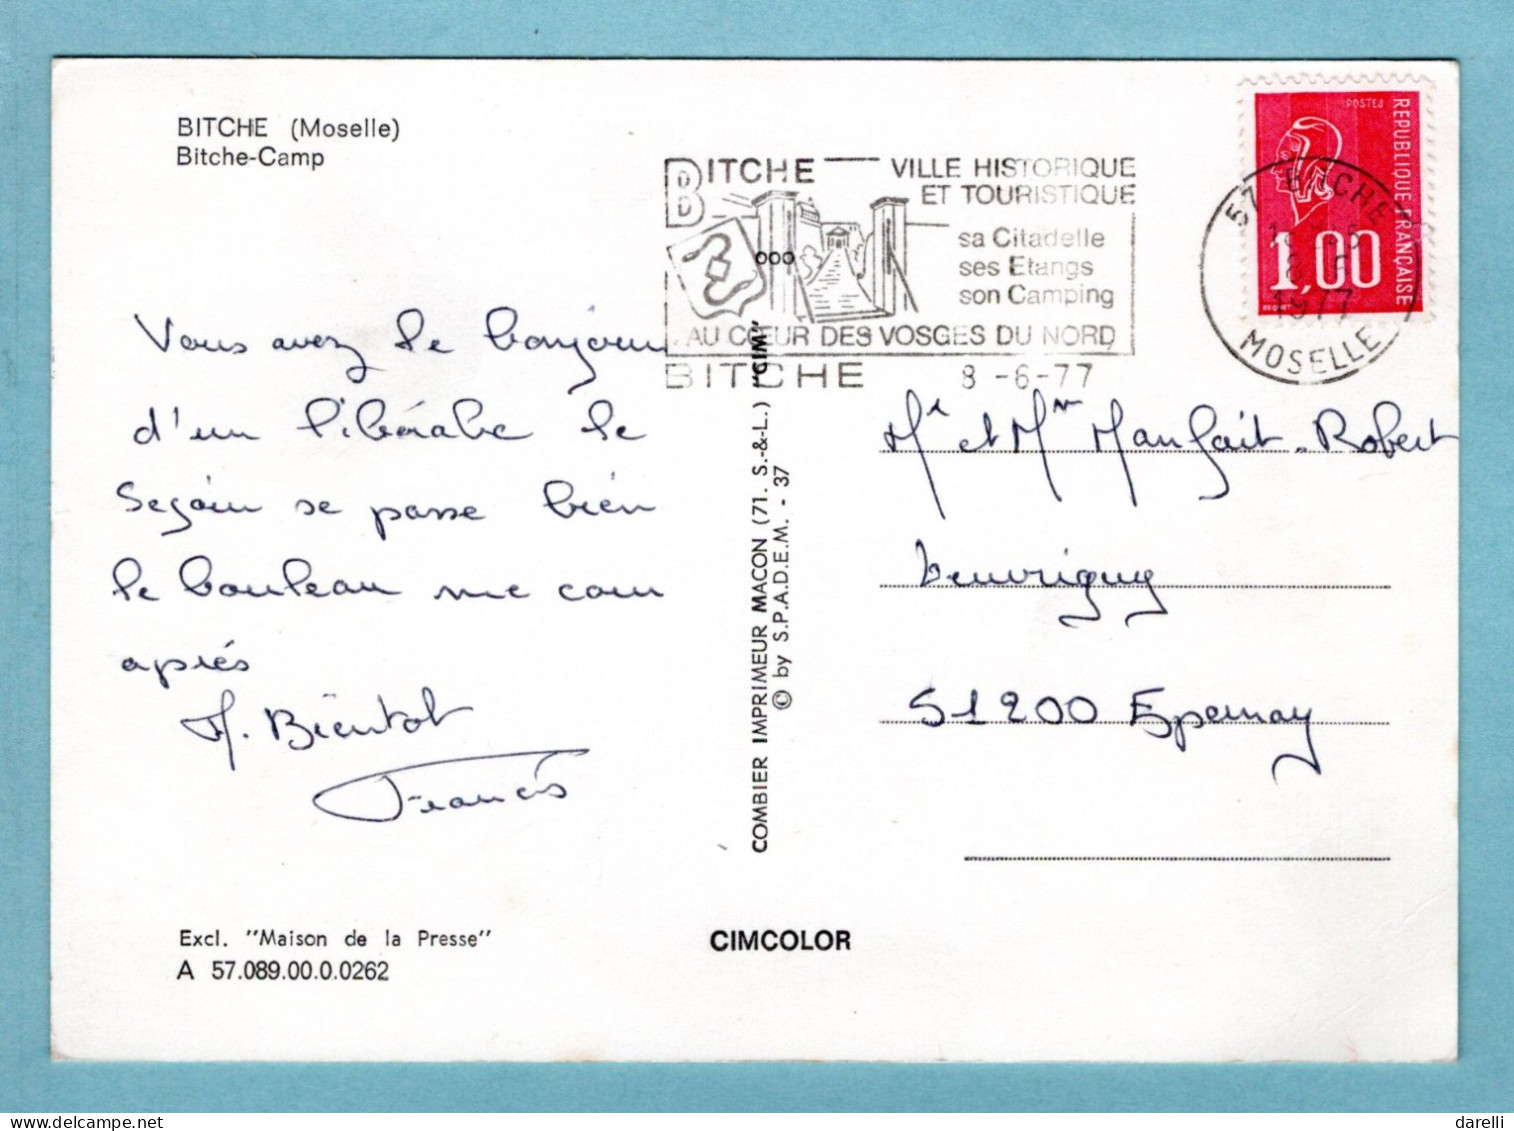 BITCHE (Moselle)
Bitche-Camp
BITCHE
VILLE HISTORIQUE
ET TOURISTIQUE
sa Citadelle
ses Etangs
son Camping
AU CŒUR DES VOSGES DU NORD
BITCHE 8-6-77
POSTES
REPUBLIQUE FRANÇAISE
1,00
57 BITCHE
1977
MOSELLE
Vous avez le bonjour
d'un libérable le
Sejour se passe bien
le bouleau me cour
aprés
A. Bientot
Francis
COMBIER IMPRIMEUR MACON (71. S.-&-L.) "CIM"
© by S.P.A.D.E.M. - 37
Mr et Mm Manfait-Robert
51200 Epernay
Excl. "Maison de la Presse"
A 57.089.00.0.0262
CIMCOLOR
darelli